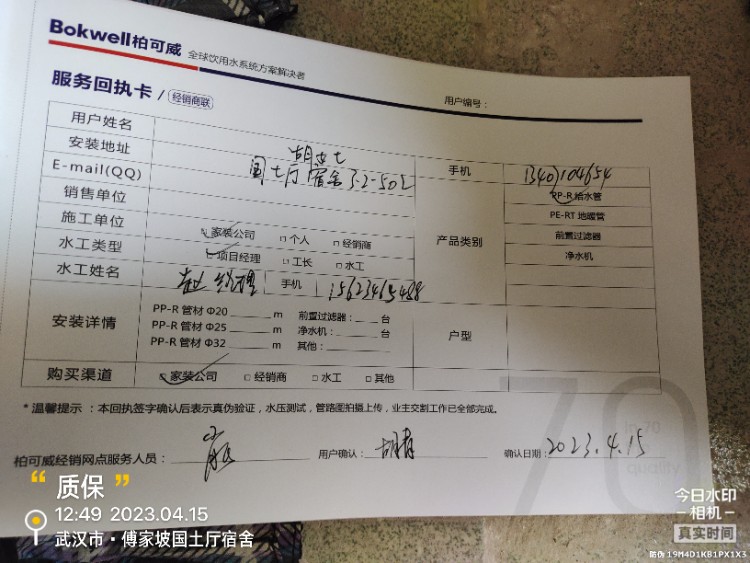 Bokwell柏可威 全球饮用水系统方案解决者
服务回执卡 / 经销商联
用户编号：
用户姓名
安装地址 国土厅宿舍 3-2-502
手机
E-mail(QQ)
销售单位
施工单位 家装公司 个人 经销商
水工类型 项目经理 工长 水工
水工姓名 赵经理 手机 15623465488
产品类别
PP-R 给水管
PE-RT 地暖管
前置过滤器
净水机
安装详情
PP-R 管材 Φ20 m 前置过滤器： 台
PP-R 管材 Φ25 m 净水机： 台
PP-R 管材 Φ32 m 其他：
户型
购买渠道 家装公司 经销商 水工 其他
*温馨提示：本回执签字确认后表示真伪验证，水压测试，管路图拍摄上传，业主交割工作已全部完成。
柏可威经销网点服务人员：
用户确认：
确认日期：2023.4.15
70
in 70
quality
“质保”
12:49 2023.04.15
武汉市·傅家坡国土厅宿舍
今日水印
相机
真实时间
防伪 19M4D1KB1PX1X3